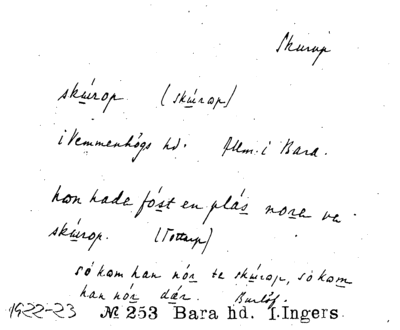 Skurup
skúrop (skúrop)
i Vemmenhögs hd. Allm. i Bara.
han hade fóst en plás nora ve
skúrop. (Tottarp)
só kom han nór te skúrop, só kom
han nór dár. Burlöf.
1922-23 № 253 Bara hd. I.Ingers